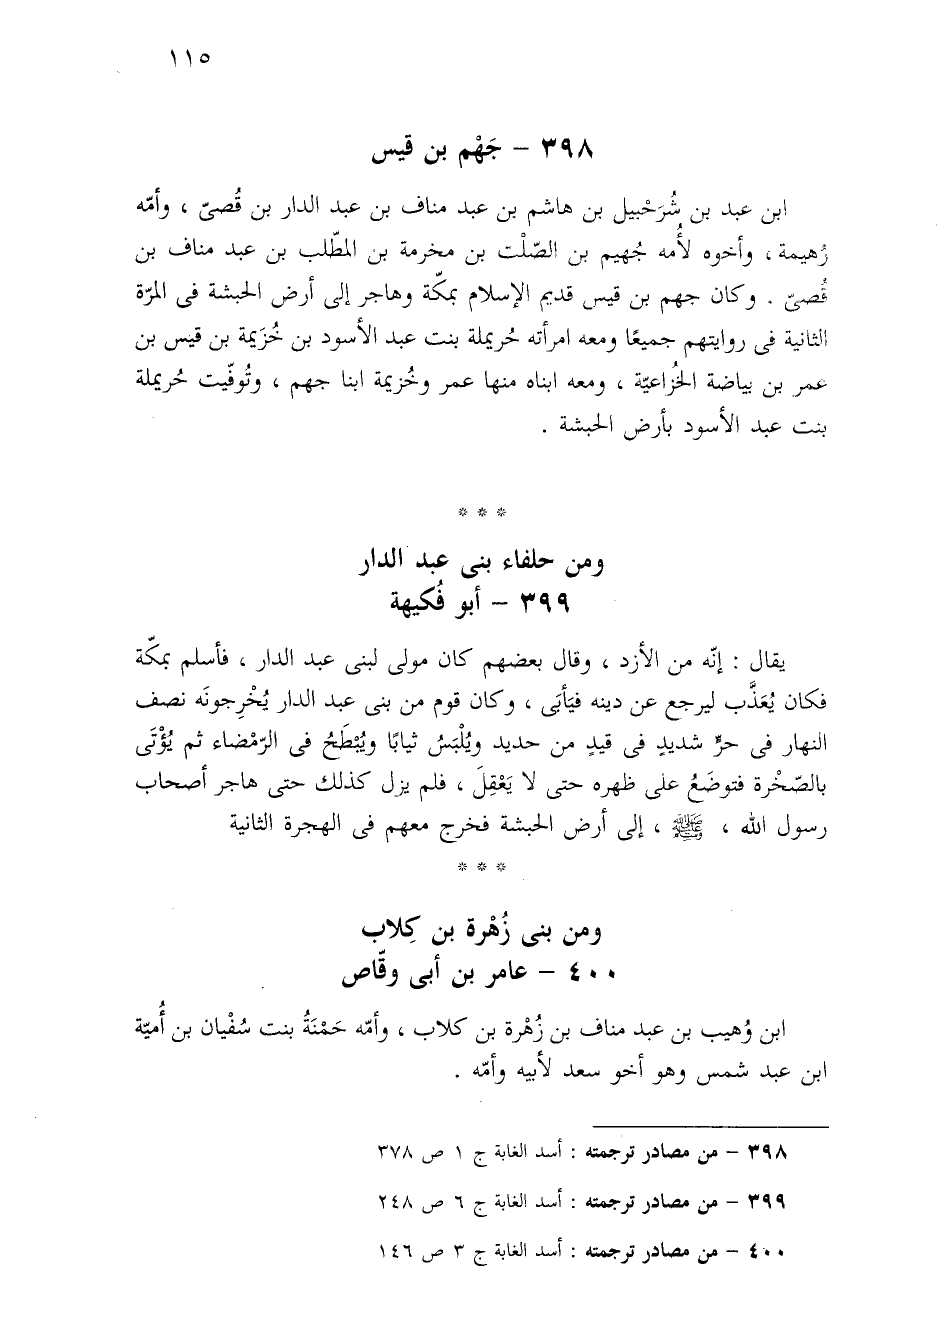 ١١٥
٣٩٨ – جَهْم بن قيس
ابن عبد بن شُرَحْبيل بن هاشم بن عبد مناف بن عبد الدار بن قُصىّ ، وأمّه
رُهيمة ، وأخوه لأُمه جُهيم بن الصّلْت بن مخرمة بن المطّلب بن عبد مناف بن
قُصىّ . وكان جهم بن قيس قديم الإسلام بمكّة وهاجر إلى أرض الحبشة فى المرّة
الثانية فى روايتهم جميعًا ومعه امرأته حُريملة بنت عبد الأسود بن خُزَيمة بن قيس بن
عمر بن بياضة الخُزاعيّة ، ومعه ابناه منها عمر وخُزيمة ابنا جهم ، وتُوفّيت حُريملة
بنت عبد الأسود بأرض الحبشة .
* * *
ومن حلفاء بنى عبد الدار
٣٩٩ – أبو فُكيهة
يقال : إنّه من الأزد ، وقال بعضهم كان مولى لبنى عبد الدار ، فأسلم بمكّة
فكان يُعَذَّب ليرجع عن دينه فيَأبَى ، وكان قوم من بنى عبد الدار يُخْرِجونَه نصف
النهار فى حرٍّ شديدٍ فى قيدٍ من حديد ويُلْبَسُ ثيابًا ويُبْطَحُ فى الرّمْضاء ثم يُؤْتَى
بالصّخْرة فتوضَعُ على ظهره حتى لا يَعْقِلَ ، فلم يزل كذلك حتى هاجر أصحاب
رسول الله ، ﷺ ، إلى أرض الحبشة فخرج معهم فى الهجرة الثانية
* * *
ومن بنى زُهْرة بن كِلاب
٤٠٠ – عامر بن أبى وقّاص
ابن وُهيب بن عبد مناف بن زُهْرة بن كلاب ، وأمّه حَمْنَةُ بنت سُفْيان بن أُميّة
ابن عبد شمس وهو أخو سعد لأبيه وأمّه .
٣٩٨ – من مصادر ترجمته : أسد الغابة ج ١ ص ٣٧٨
٣٩٩ – من مصادر ترجمته : أسد الغابة ج ٦ ص ٢٤٨
٤٠٠ – من مصادر ترجمته : أسد الغابة ج ٣ ص ١٤٦